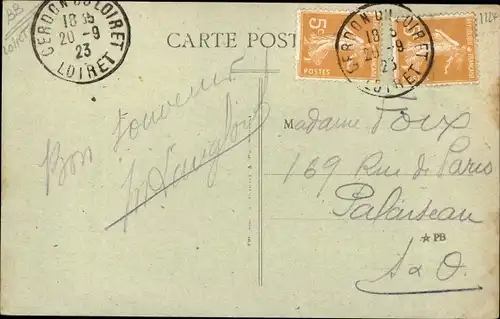 BB
LOIRET
CERDON DU LOIRET
18 35
20 - 9
23
LOIRET
CARTE POST
5c
POSTES
CERDON DU LOIRET
18 35
20 - 9
23
LOIRET
Bon souvenir
Madame Foux
169 Rue de Paris
Palaiseau
★ PB
S & O.